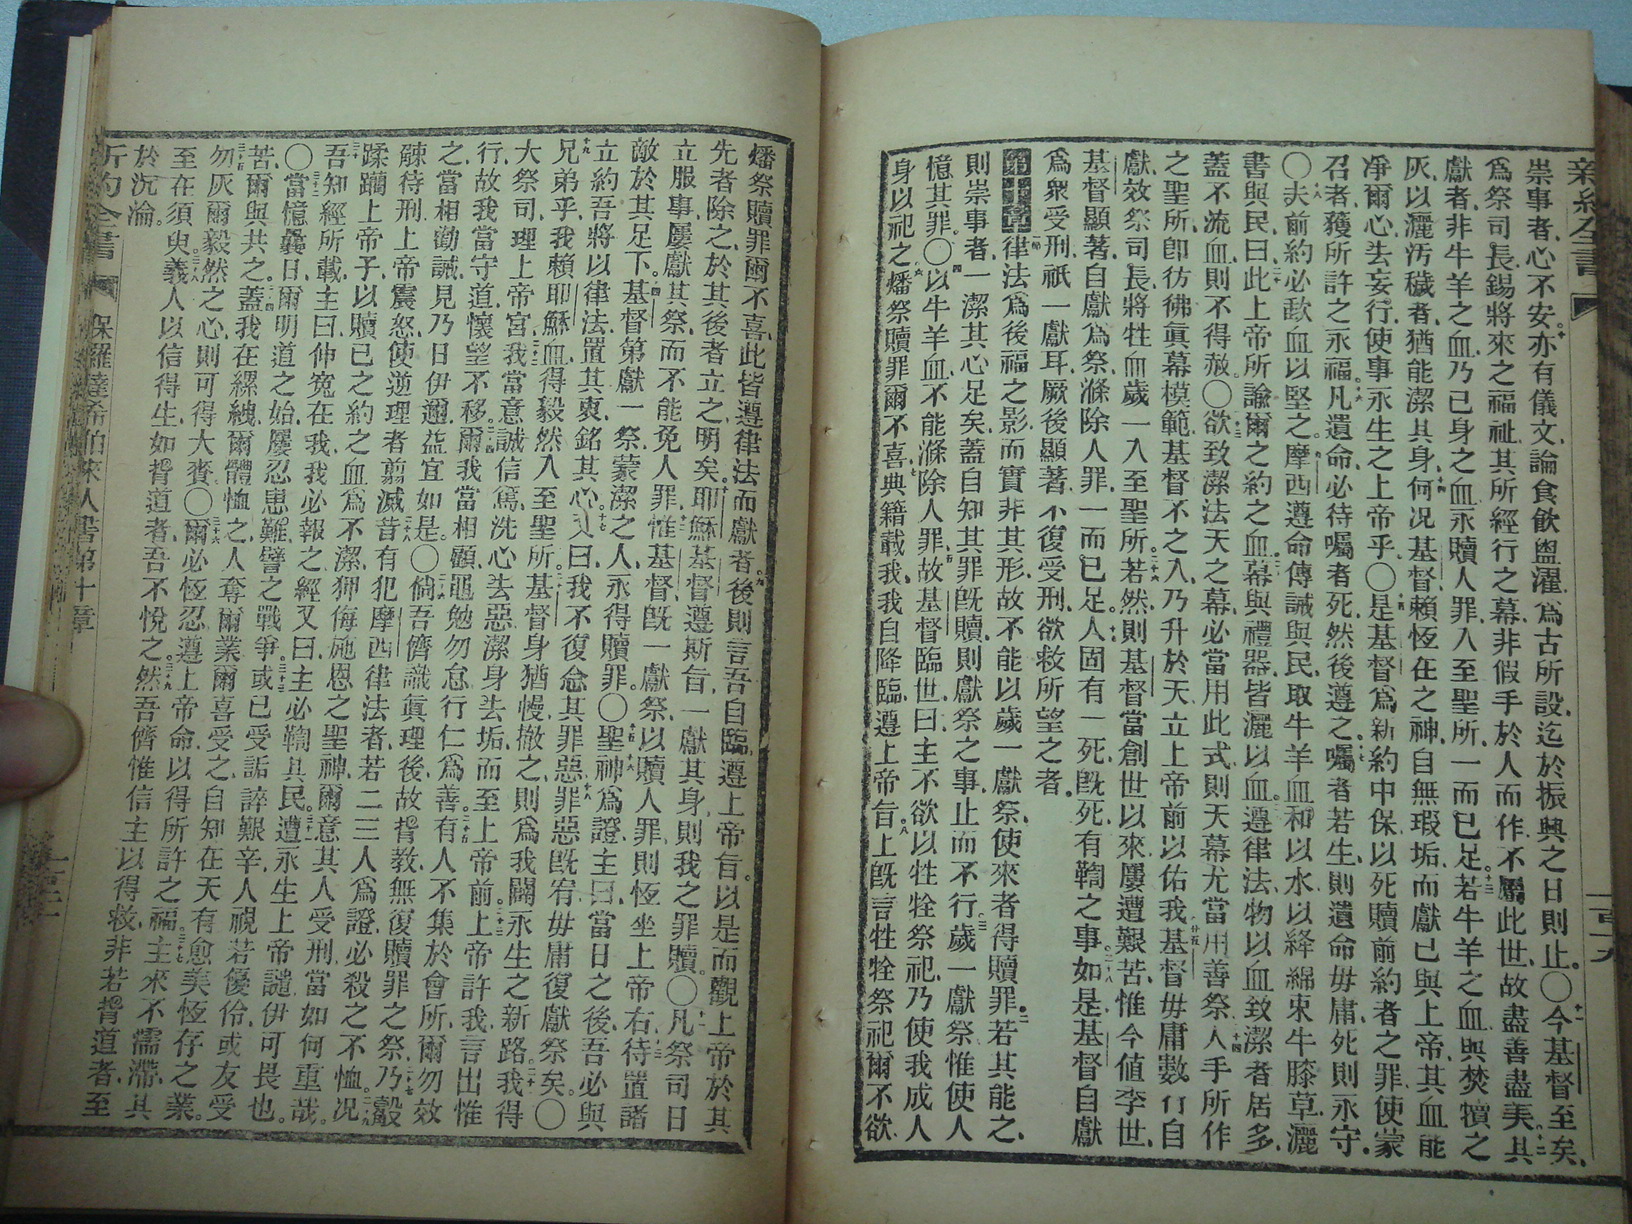 新約全書
一百十九
崇事者、心不安、亦有儀文、論食飲盥濯、爲古所設、迄於振興之日則止。〇今基督至矣、
爲祭司長、錫將來之福祉、其所經行之幕、非假手於人而作、不屬此世、故盡善盡美、其
獻者、非牛羊之血、乃己身之血、永贖人罪、入至聖所、一而已足。若牛羊之血、與焚犢之
灰、以灑汚穢者、猶能潔其身、何况基督賴恆在之神、自無瑕垢、而獻己與上帝、其血能
凈爾心、去妄行、使事永生之上帝乎、〇是基督爲新約中保、以死贖前約者之罪、使蒙
召者、獲所許之永福。凡遺命、必待囑者死、然後遵之、囑者若生、則遺命毋庸、死則永守、
〇夫前約必歃血以堅之。摩西遵命傳誡與民、取牛羊血、和以水、以絳綿束牛膝草、灑
書與民、曰、此上帝所諭爾之約之血、幕與禮器、皆灑以血、遵律法、物以血致潔者居多、
蓋不流血、則不得赦。〇欲致潔法天之幕、必當用此式、則天幕尤當用善祭、人手所作
之聖所、卽彷彿眞幕模範、基督不之入、乃升於天、立上帝前以佑我、基督毋庸數行自
獻、效祭司長、將牲血歲一入至聖所。若然、則基督當創世以來、屢遭艱苦、惟今值季世、
基督顯著、自獻爲祭、滌除人罪、一而已足、人固有一死、旣死有鞫之事、如是、基督自獻
爲衆受刑、祇一獻耳、厥後顯著、不復受刑、欲救所望之者。
第十章 律法爲後福之影、而實非其形、故不能以歲一獻祭、使來者得贖罪。若其能之、
則崇事者、一潔其心足矣、蓋自知其罪旣贖、則獻祭之事、止而不行、歲一獻祭、惟使人
憶其罪。〇以牛羊血、不能滌除人罪、故基督臨世曰、主不欲以牲牷祭祀、乃使我成人
身以祀之、燔祭贖罪、爾不喜、典籍載我、我自降臨、遵上帝旨、上旣言牲牷祭祀、爾不欲、
燔祭贖罪、爾不喜、此皆遵律法而獻者、後則言吾自臨、遵上帝旨。以是而觀、上帝於其
先者除之、於其後者立之、明矣。耶穌基督遵斯旨、一獻其身、則我之罪贖。〇凡祭司日
立服事、屢獻其祭、而不能免人罪、惟基督旣一獻祭、以贖人罪、則恆坐上帝右、待置諸
敵於其足下。基督第獻一祭、蒙潔之人、永得贖罪。〇聖神爲證、主曰、當日之後、吾必與
立約、吾將以律法置其衷、銘其心、又曰、我不復念其罪惡、罪惡旣宥、毋庸復獻祭矣。〇
兄弟乎、我賴耶穌血、得毅然入至聖所。基督身猶幔、撤之、則爲我闢永生之新路、我得
大祭司、理上帝宮、我當意誠信篤、洗心去惡、潔身去垢、而至上帝前、上帝許我、言出惟
行、故我當守道、懷望不移、爾我當相顧、黽勉勿怠、行仁爲善。有人不集於會所、爾勿效
之、當相勸誡、見乃日伊邇、益宜如是。〇倘吾儕識眞理後、故背教、無復贖罪之祭、乃觳
觫待刑、上帝震怒、使逆理者翦滅、昔有犯摩西律法者、若二三人爲證、必殺之不恤。况
蹂躪上帝子、以贖己之約之血爲不潔、狎侮施恩之聖神、爾意其人受刑、當如何重哉。
吾知經所載、主曰、伸寃在我、我必報之、經又曰、主必鞫其民。遭永生上帝譴、伊可畏也。
〇當憶曩日、爾明道之始、屢忍患難、譬之戰爭。或已受詬誶艱辛、人視若優伶、或友受
苦、爾與共之。蓋我在縲絏、爾體恤之、人奪爾業、爾喜受之、自知在天有愈美恆存之業。
勿灰爾毅然之心、則可得大賚。〇爾必恆忍、遵上帝命、以得所許之福。主來不濡滯、其
至在須臾、義人以信得生、如背道者、吾不悅之、然吾儕惟信主以得救、非若背道者、至
於沉淪。
新約全書 保羅達希伯來人書第十章